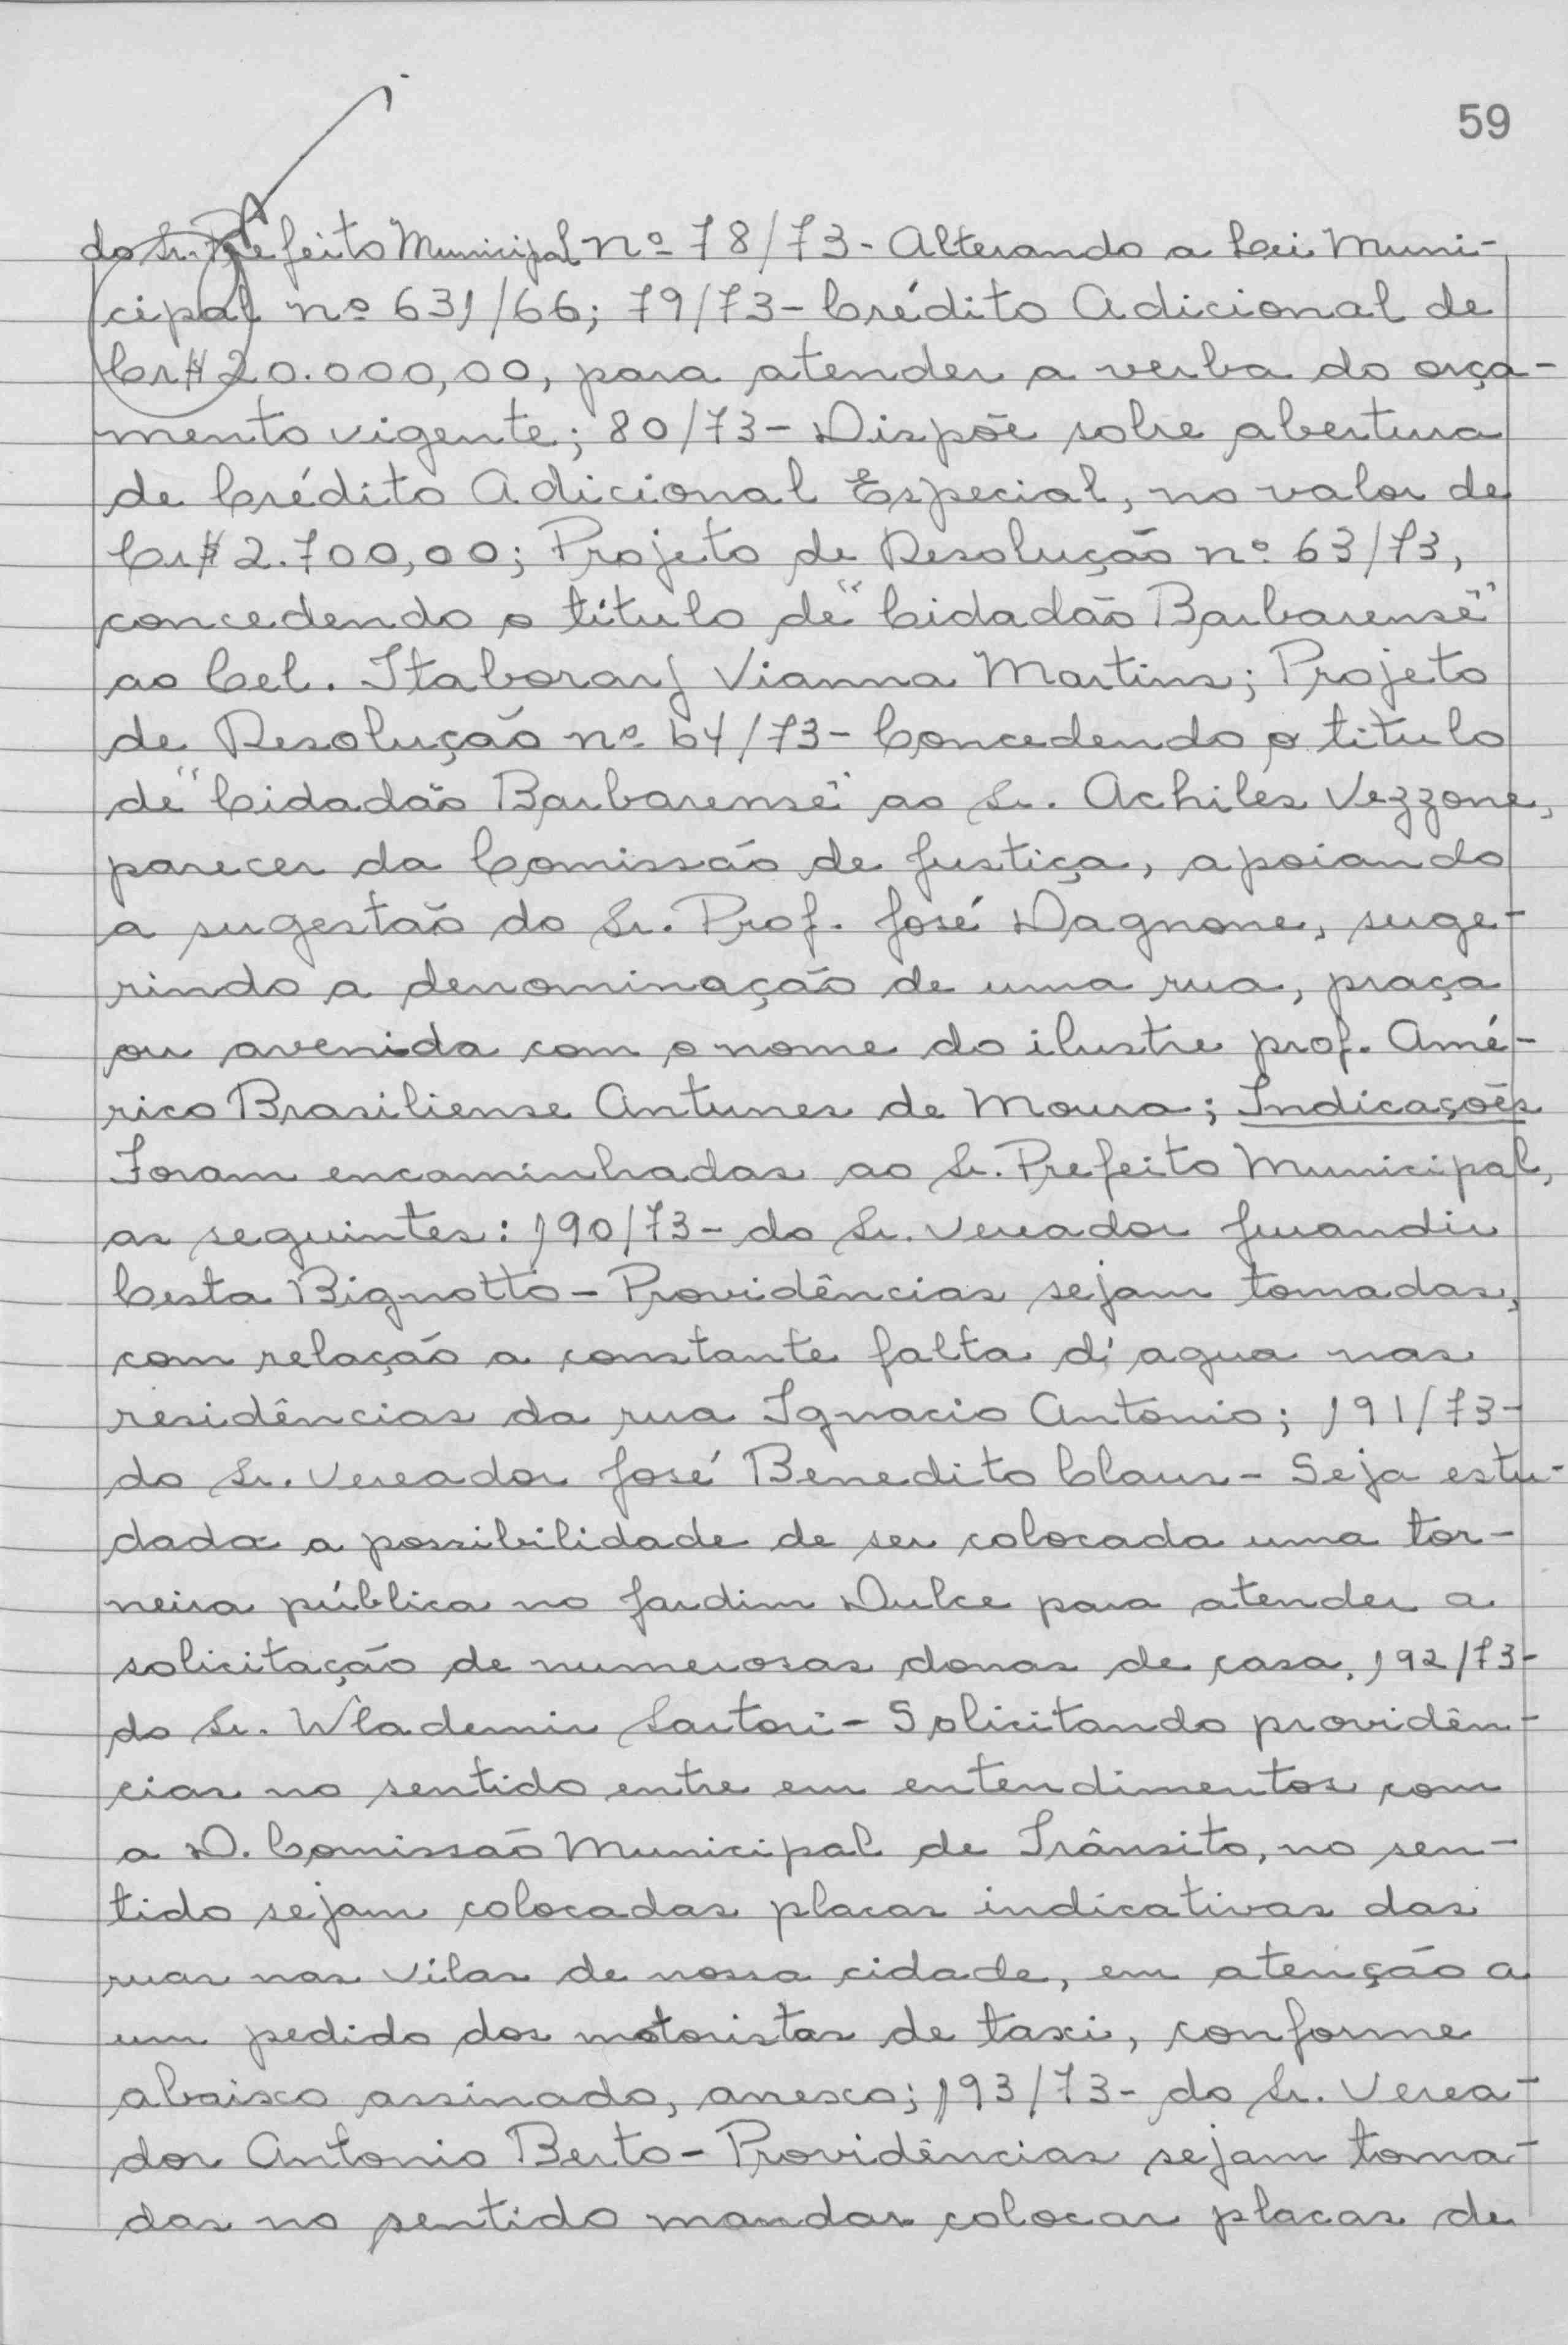 59
do Sr. Prefeito Municipal nº 78/73 - Alterando a Lei Muni-
cipal nº 631/66; 79/73 - Crédito Adicional de
Cr$ 20.000,00, para atender a verba do orça-
mento vigente; 80/73 - Dispõe sobre abertura
de Crédito Adicional Especial, no valor de
Cr$ 2.700,00; Projeto de Resolução nº 63/73,
concedendo o título de "Cidadão Barbarense"
ao Cel. Itaborary Vianna Martins; Projeto
de Resolução nº 64/73 - Concedendo o titulo
de "Cidadão Barbarense" ao Sr. Achiles Vezzone,
parecer da Comissão de Justiça, apoiando
a sugestão do Sr. Prof. José Dagnone, suge-
rindo a denominação de uma rua, praça
ou avenida com o nome do ilustre prof. Amé-
rico Brasiliense Antunes de Moura; Indicações
Foram encaminhadas ao Sr. Prefeito Municipal,
as seguintes: 190/73 - do Sr. Vereador Jurandir
Cesta Bignotto - Providências sejam tomadas,
com relação a constante falta d'agua nas
residências da rua Ignacio Antônio; 191/73 -
do Sr. Vereador José Benedito Claus - Seja estu-
dada a possibilidade de ser colocada uma tor-
neira pública no Jardim Dulce para atender a
solicitação de numerosas donas de casa. 192/73 -
do Sr. Wlademir Sartori - Solicitando providên-
cias no sentido entre em entendimentos com
a D. Comissão Municipal de Trânsito, no sen-
tido sejam colocadas placas indicativas das
ruas nas vilas de nossa cidade, em atenção a
um pedido dos motoristas de taxi, conforme
abaixo assinado, anexo; 193/73 - do Sr. Verea-
dor Antonio Berto - Providências sejam toma-
das no sentido mandar colocar placas de